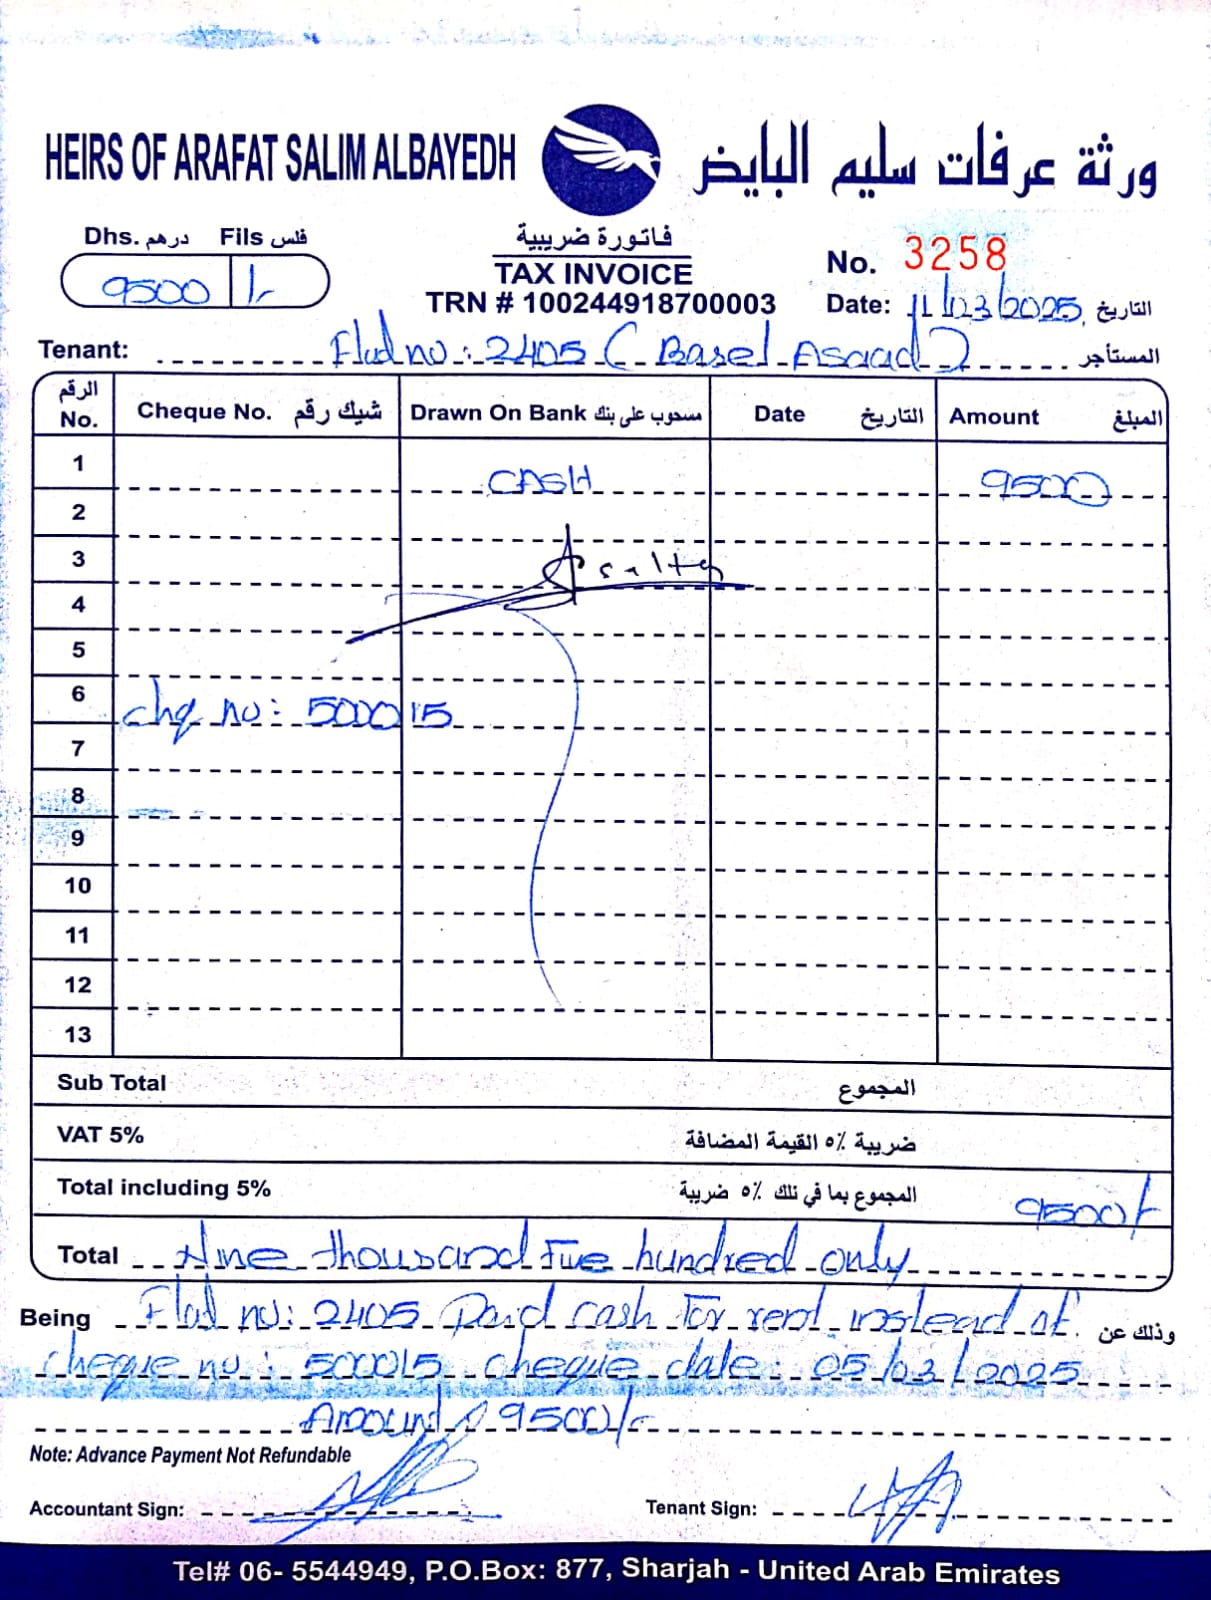 HEIRS OF ARAFAT SALIM ALBAYEDH ورثة عرفات سليم البايض
Dhs. درهم Fils فلس
9500 /-
فاتورة ضريبية
TAX INVOICE
TRN # 100244918700003
No. 3258
Date: 11/03/2025 التاريخ
Tenant: Flat no: 2405 ( Basel Asaad ) المستأجر
الرقم No. Cheque No. شيك رقم Drawn On Bank مسحوب على بنك Date التاريخ Amount المبلغ
1 CASH 9500
2
3
4
5
6 chq no: 500015
7
8
9
10
11
12
13
Sub Total المجموع
VAT 5% ضريبة ٥٪ القيمة المضافة
Total including 5% المجموع بما في ذلك ٥٪ ضريبة 9500/-
Total Nine thousand Five hundred only
Being Flat no: 2405 Paid cash for rent instead of وذلك عن
cheque no: 500015 cheque date: 05/03/2025
Amount 9500/-
Note: Advance Payment Not Refundable
Accountant Sign: Tenant Sign:
Tel# 06- 5544949, P.O.Box: 877, Sharjah - United Arab Emirates